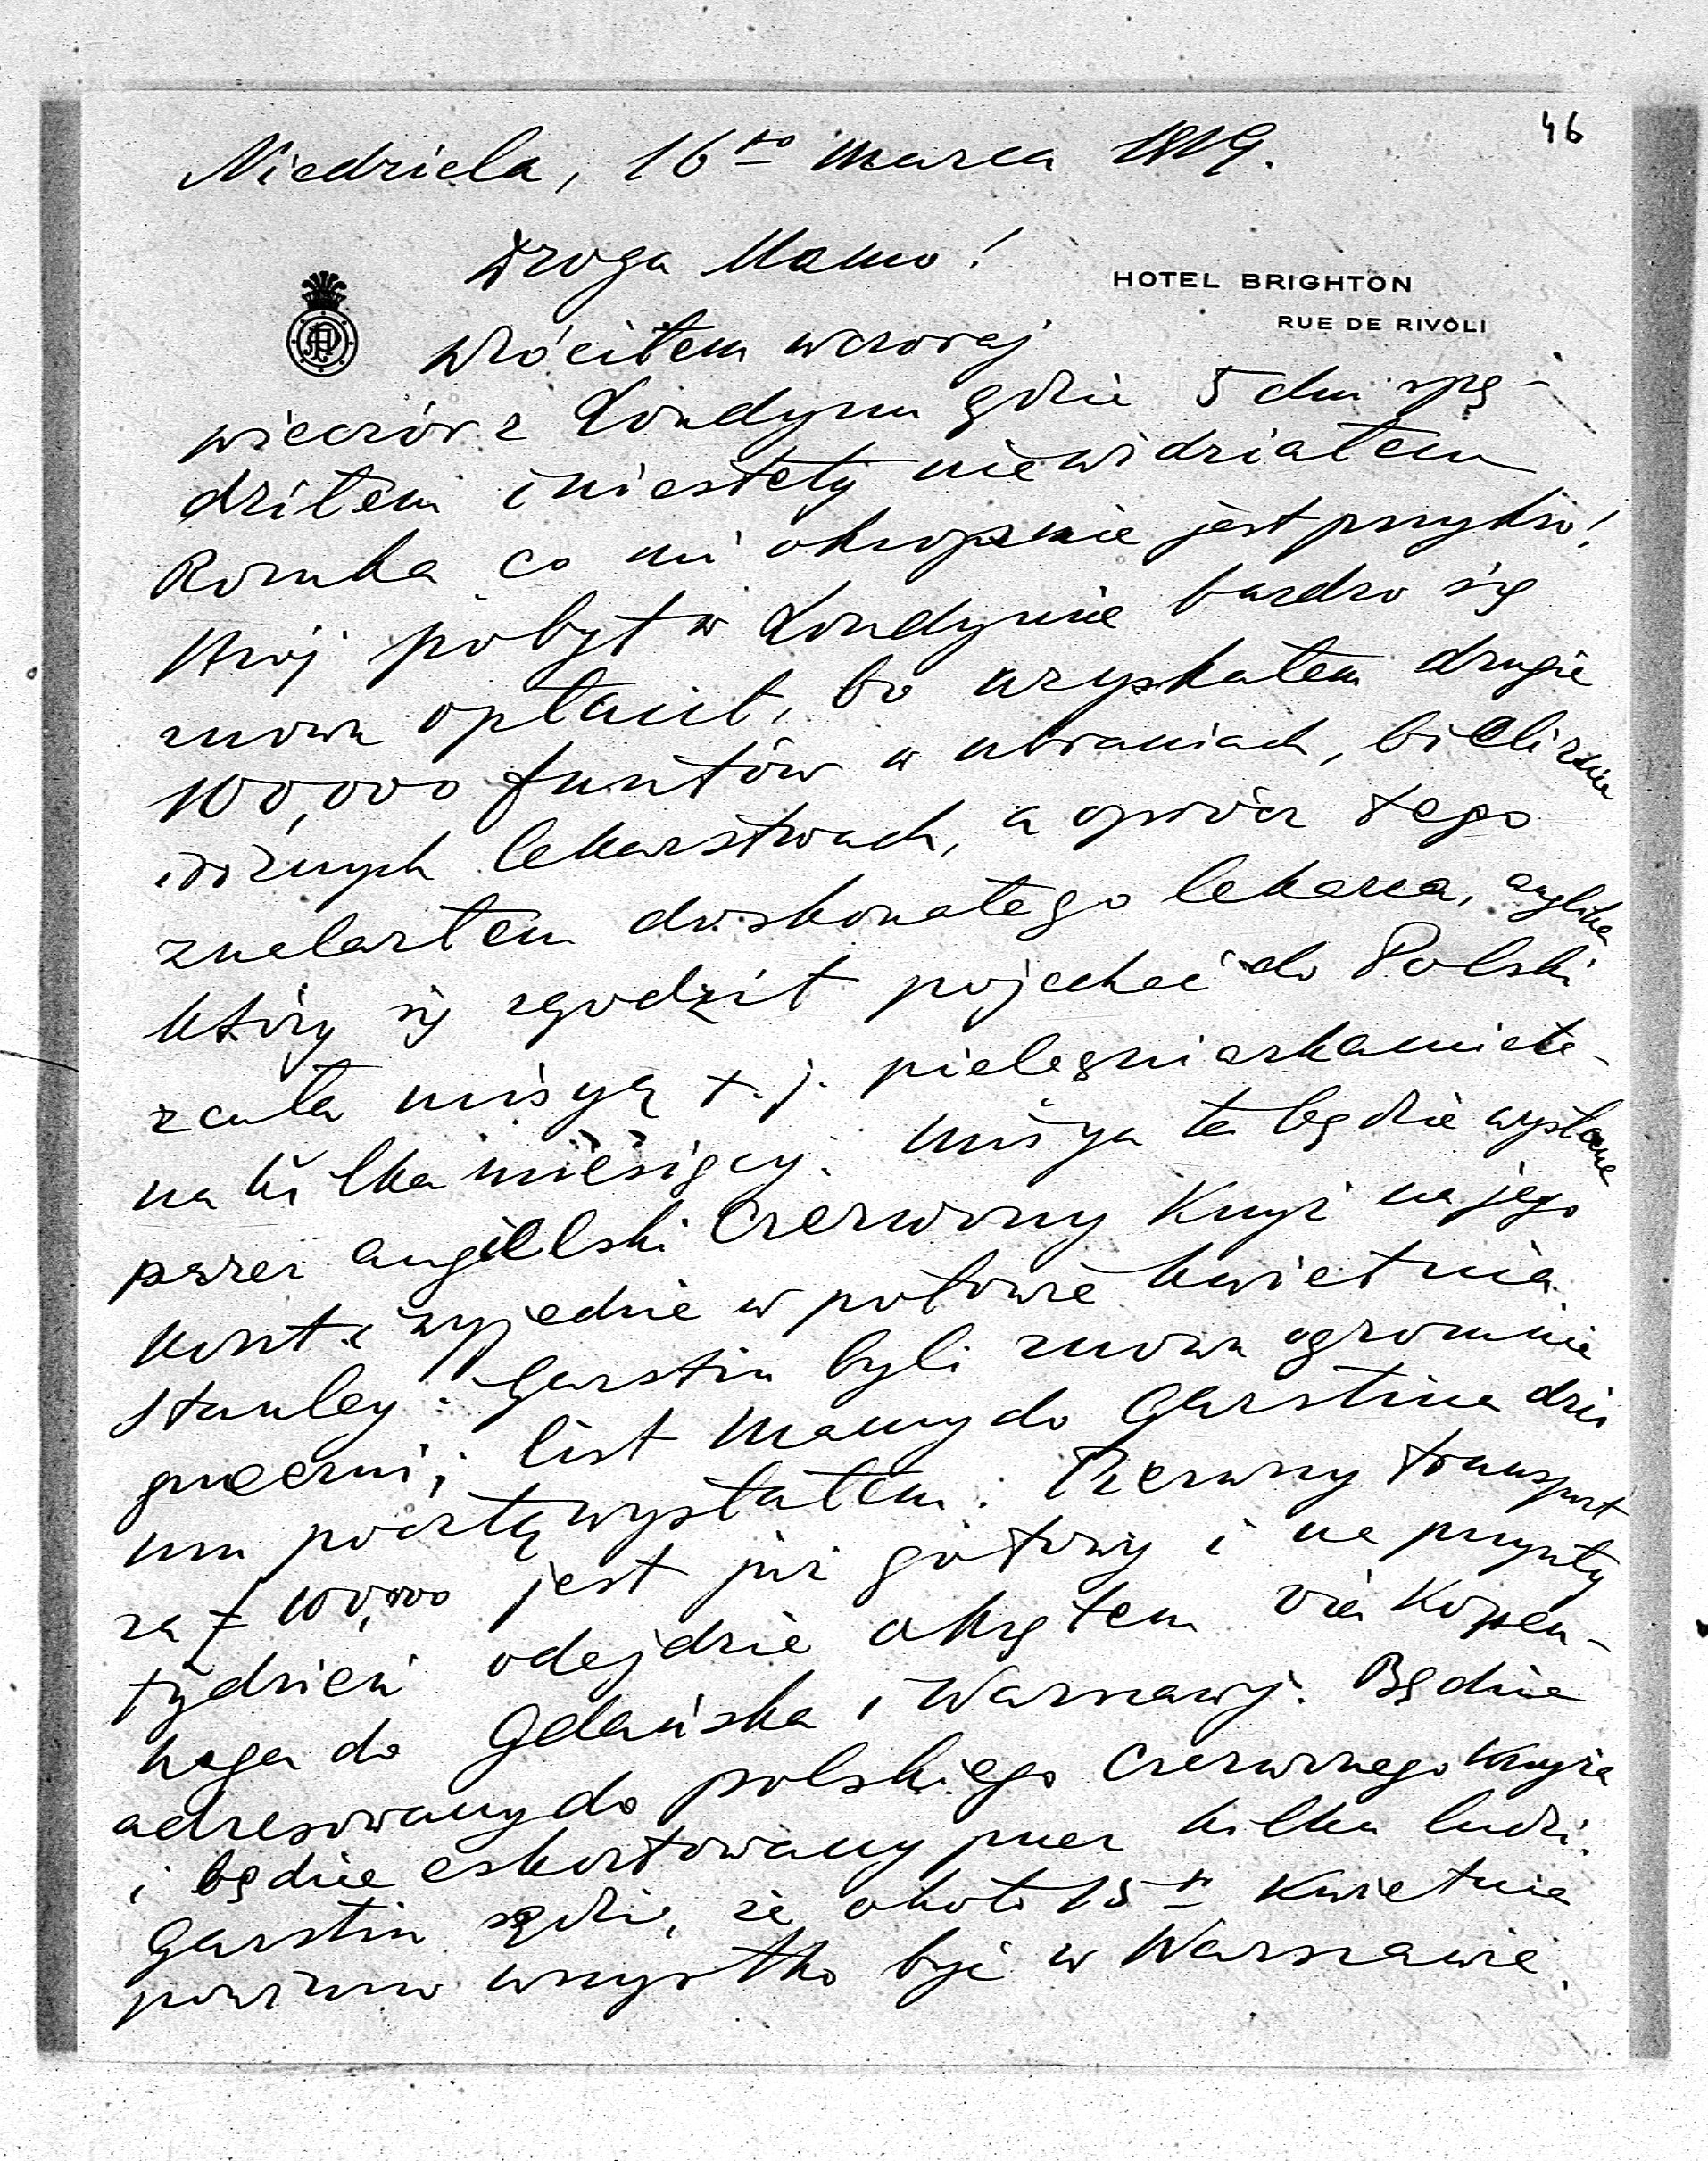 46
Niedziela, 16go marca 1919.
Droga Mamo!
HOTEL BRIGHTON
RUE DE RIVOLI
Wróciłem wczoraj
wieczór z Londynu gdzie 5 dni spę-
dziłem i niestety niewidziałem
Romka co mi okropnie jest przykro!
Mój pobyt w Londynie bardzo się
znowu opłacił, bo uzyskałem drugie
100,000 funtów w ubraniach, bieliznie
i różnych lekarstwach, a oprócz tego
znalazłem doskonałego lekarza, anglika
który się zgodził pojechać do Polski
z całą misyą t.j. pielęgniarkami etc-
na kilka miesięcy. Misya ta będzie wysłana
przez angielski Czerwony Krzyż na jego
koszt i wyjedzie w połowie kwietnia.
Stanley i Garstin byli znowu ogromnie
grzeczni; list Mamy do Garstina dziś
mu pocztą wysłałem. Pierwszy transport
za £ 100,000 jest już gotowy i na przyszły
tydzień odejdzie okrętem via Kopen-
haga do Gdańska i Warszawy. Będzie
adresowany do polskiego Czerwonego Krzyża
i będzie eskortowany przez kilku ludzi.
Garstin sądzi, że około 15go Kwietnia
powinno wszystko być w Warszawie.